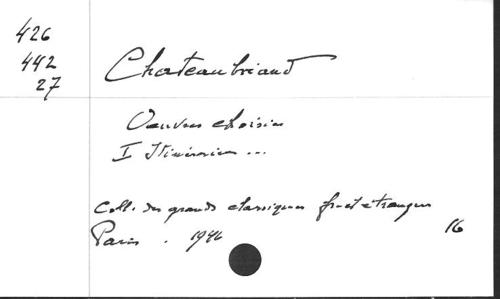 426
442
27
Chateaubriand
Oeuvres choisies
I Itinéraire ...
Coll. des grands classiques fr. et étrangers
Paris . 1946
16